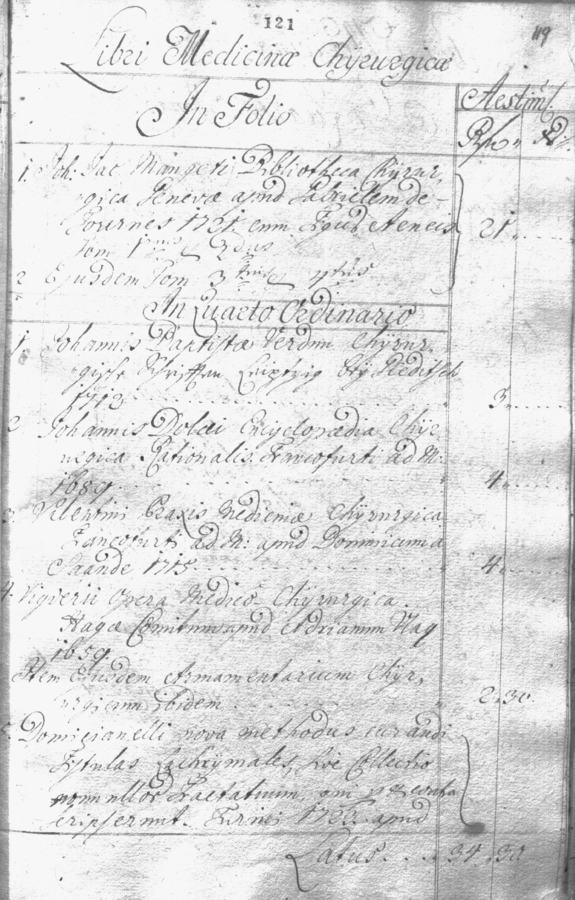 121
119
Libri Medicinæ Chyrurgicæ
Aestim.
In Folio
1. Joh. Jac Mangeti Bibliotheca Chyrur
gica Genevæ apud Gabrielem de
Tournes 1721. cum Figuris Aeneis
Tom 1mus & 2dus
21
2 Ejusdem Tom 3tius & 4tus
In Quarto Ordinario
1. Johannis Baptistæ Verduc Chyrur
gische Schrifften Leiptzig bey Gleditsch
1712
3
2 Johannis Dolæi Encyclopædia Chyr
urgica Rationalis Francofurti ad M:
1689
4
3. Valentini Praxis Medicinæ Chyrurgica
Francofurti ad M: apud Dominicum a
Saande 1715
4
4. Vigierii Opera Medico Chyrurgica
Hagæ Comitum apud Adrianum Vlaq
1659
Item Ejusdem Armamentarium Chyr,
urgicum Ibidem
2. 30.
5. nova methodus curandi
Fistulas Lachrymales, sive Collectio
nonnullor Tractatuum, qui
scripserunt. apud
Latus 34 30